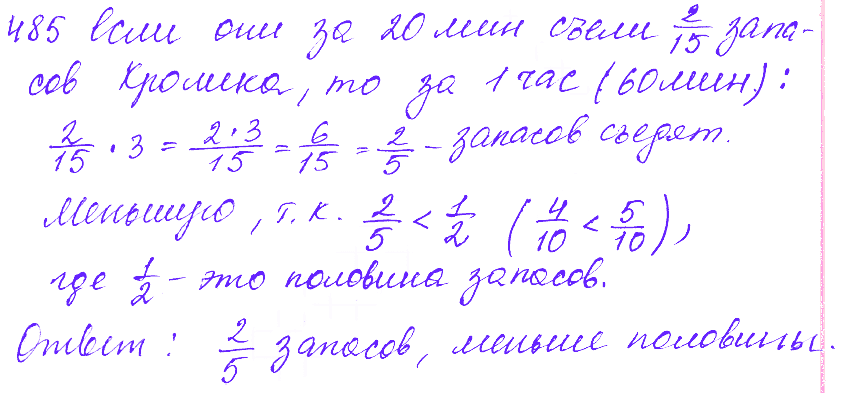 485 Если они за 20 мин съели 2/15 запа-
сов Кролика, то за 1 час (60 мин):
2/15 · 3 = 2·3/15 = 6/15 = 2/5 – запасов съедят.
Меньшую, т.к. 2/5 < 1/2 (4/10 < 5/10),
где 1/2 – это половина запасов.
Ответ: 2/5 запасов, меньше половины.